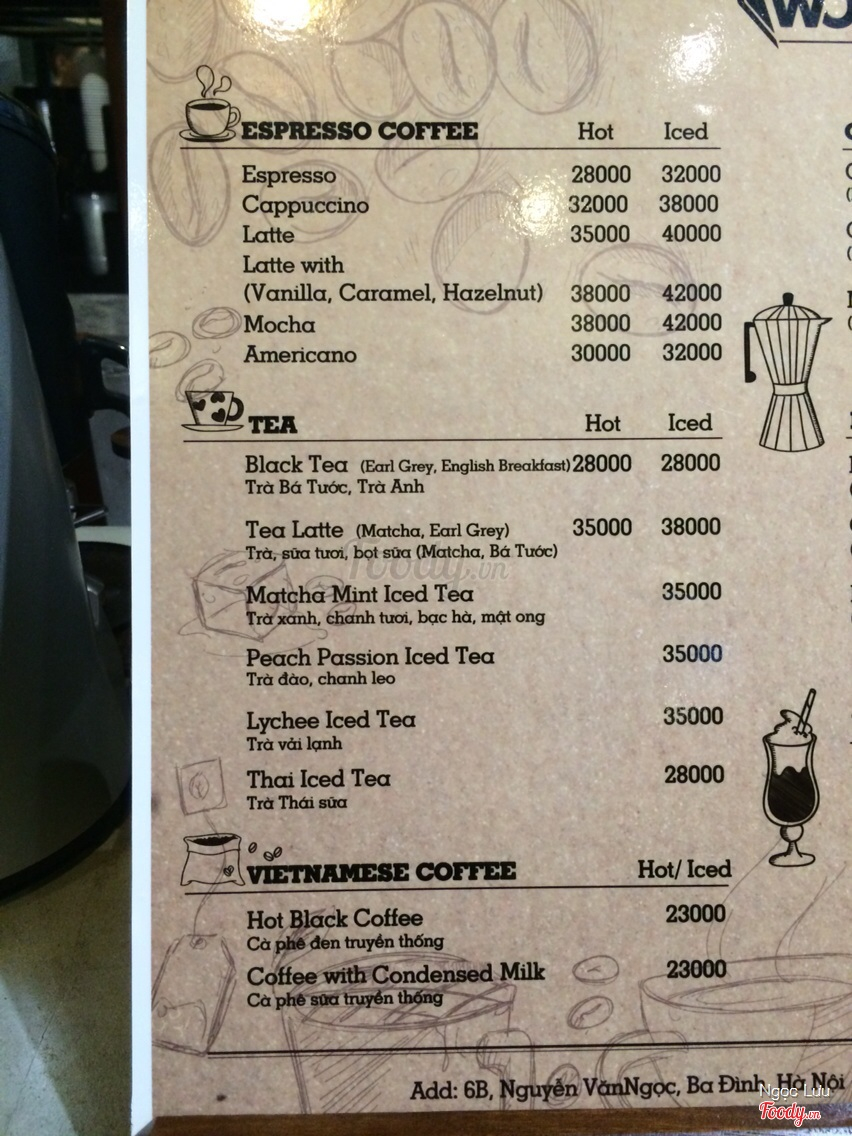 ESPRESSO COFFEE Hot Iced
Espresso 28000 32000
Cappuccino 32000 38000
Latte 35000 40000
Latte with
(Vanilla, Caramel, Hazelnut) 38000 42000
Mocha 38000 42000
Americano 30000 32000
TEA Hot Iced
Black Tea (Earl Grey, English Breakfast) 28000 28000
Trà Bá Tước, Trà Anh
Tea Latte (Matcha, Earl Grey) 35000 38000
Trà, sữa tươi, bọt sữa (Matcha, Bá Tước)
Foody.vn
Matcha Mint Iced Tea 35000
Trà xanh, chanh tươi, bạc hà, mật ong
Peach Passion Iced Tea 35000
Trà đào, chanh leo
Lychee Iced Tea 35000
Trà vải lạnh
Thai Iced Tea 28000
Trà Thái sữa
VIETNAMESE COFFEE Hot/ Iced
Hot Black Coffee 23000
Cà phê đen truyền thống
Coffee with Condensed Milk 23000
Cà phê sữa truyền thống
Add: 6B, Nguyễn VănNgọc, Ba Đình, Hà Nội
Ngọc Lưu
Foody.vn